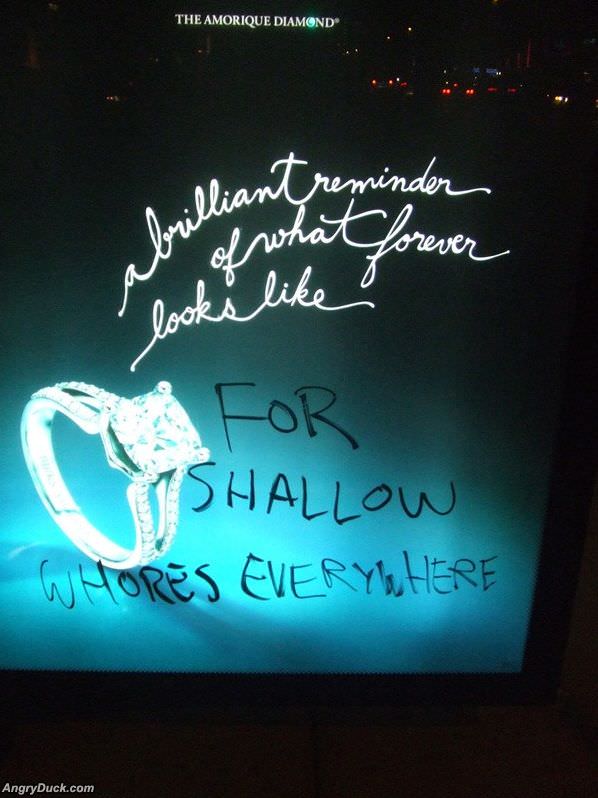 THE AMORIQUE DIAMOND®
a brilliant reminder
of what forever
looks like
FOR
SHALLOW
WHORES EVERYWHERE
AngryDuck.com